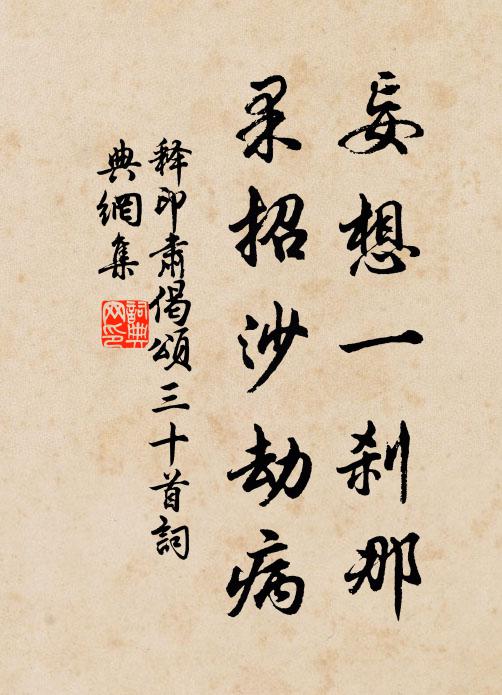 妄想一刹那
果招沙劫病
釋印肅偈頌三十首詞
典網集
詞典
网印